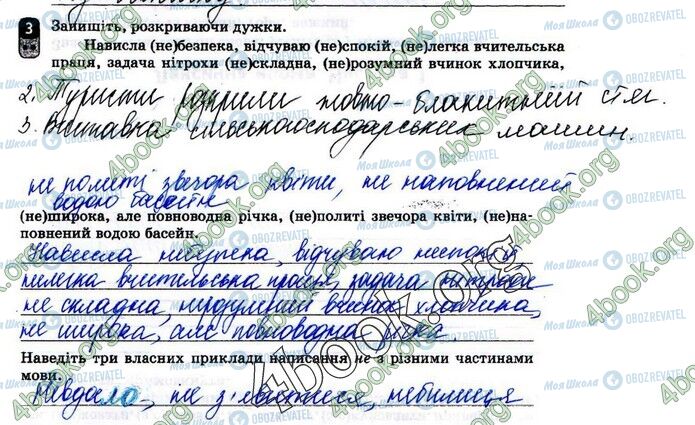 3 Запишіть, розкриваючи дужки.
Нависла (не)безпека, відчуваю (не)спокій, (не)легка вчительська
праця, задача нітрохи (не)складна, (не)розумний вчинок хлопчика,
2. Туристи відкрили жовто-блакитний стяг.
3. Виставка сільськогосподарських машин.
не политі звечора квіти, не наповнений
водою басейн
(не)широка, але повноводна річка, (не)политі звечора квіти, (не)на-
повнений водою басейн.
Нависла небезпека, відчуваю неспокій,
нелегка вчительська праця, задача нітрохи
не складна, нерозумний вчинок хлопчика,
не широка, але повноводна річка
Наведіть три власних приклади написання не з різними частинами
мови.
Невдало, не з'явитися, небилиця
4book.org
Моя Школа OBOZREVATEL